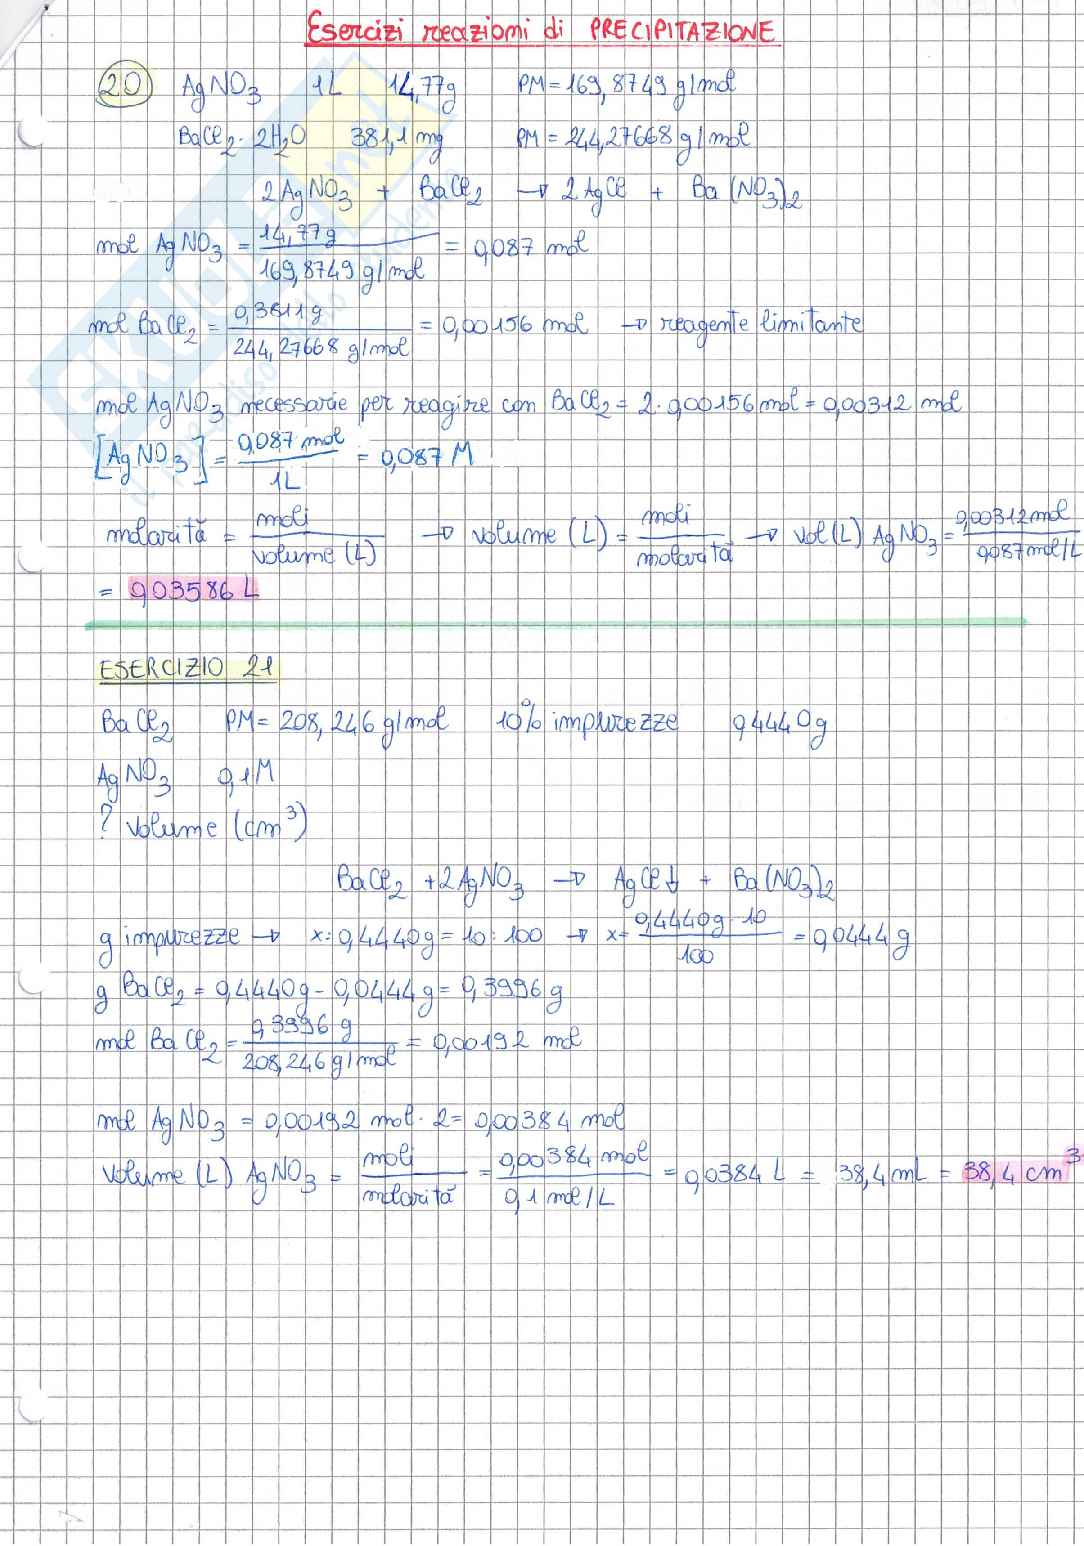 Esercizi reazioni di PRECIPITAZIONE
20 AgNO3 1L 14,77g PM = 169,8749 g/mol
BaCl2 · 2H2O 381,1 mg PM = 244,27668 g/mol
2AgNO3 + BaCl2 → 2AgCl + Ba(NO3)2
mol AgNO3 = 14,77g / 169,8749 g/mol = 0,087 mol
mol BaCl2 = 0,3811g / 244,27668 g/mol = 0,00156 mol → reagente limitante
mol AgNO3 necessarie per reagire con BaCl2 = 2 · 0,00156 mol = 0,00312 mol
[AgNO3] = 0,087 mol / 1L = 0,087 M
molarità = moli / volume (L) → volume (L) = moli / molarità → vol(L) AgNO3 = 0,00312 mol / 0,087 mol/L
= 0,03586 L
ESERCIZIO 21
BaCl2 PM = 208,246 g/mol 10% impurezze 0,4440g
AgNO3 0,1M
? volume (cm³)
BaCl2 + 2AgNO3 → AgCl↓ + Ba(NO3)2
g impurezze → x : 0,4440g = 10 : 100 → x = 0,4440g · 10 / 100 = 0,0444 g
g BaCl2 = 0,4440g - 0,0444g = 0,3996 g
mol BaCl2 = 0,3996 g / 208,246 g/mol = 0,00192 mol
mol AgNO3 = 0,00192 mol · 2 = 0,00384 mol
volume (L) AgNO3 = moli / molarità = 0,00384 mol / 0,1 mol/L = 0,0384 L = 38,4 mL = 38,4 cm³